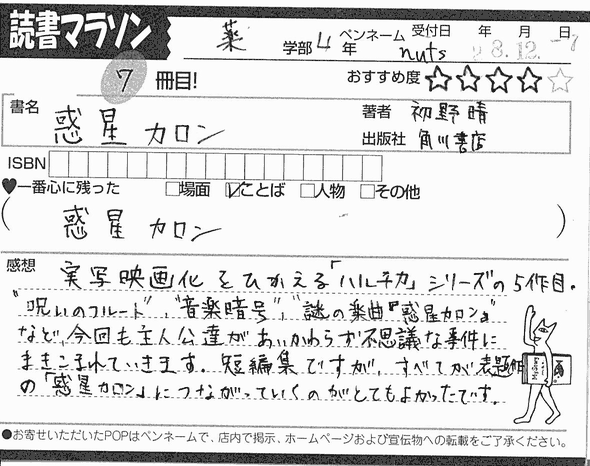 読書マラソン
薬 学部 4 年 ペンネーム nuts 受付日 年 月 日
8.12.-7
7 冊目! おすすめ度 ☆☆☆☆☆
書名 惑星カロン
著者 初野晴
出版社 角川書店
ISBN
♥一番心に残った □場面 ☑ことば □人物 □その他
( 惑星カロン )
感想 実写映画化をひかえる「ハルチカ」シリーズの5作目。
"呪いのフルート"、"音楽暗号"、"謎の楽曲『惑星カロン』"
など、今回も主人公達があいかわらず不思議な事件に
まきこまれていきます。短編集ですが、すべてが表題作
の「惑星カロン」につながっていくのがとてもよかったです。
●お寄せいただいたPOPはペンネームで、店内で掲示、ホームページおよび宣伝物への転載をご了承ください。